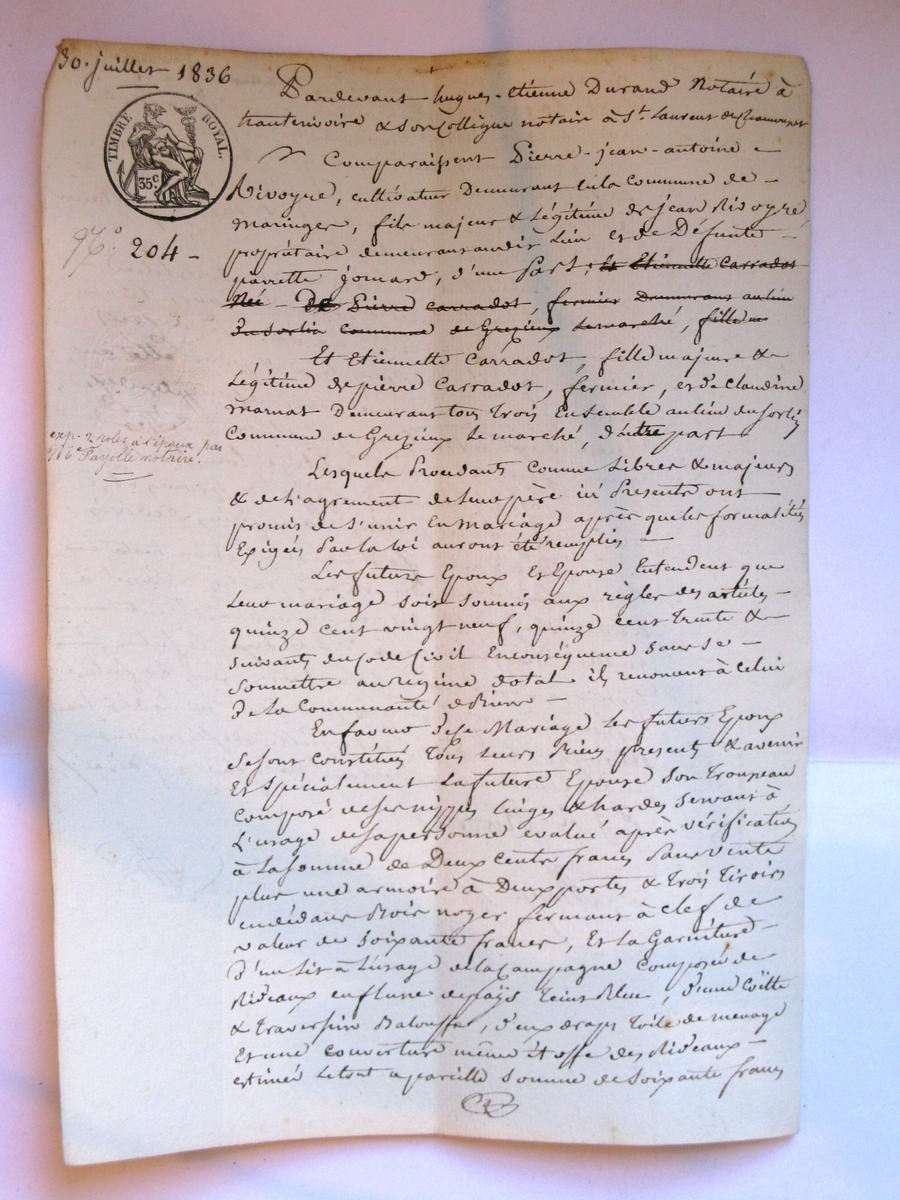 30. juillet 1836
Pardevant hugues-étienne Durand Notaire à
hauterivoire & son Collègue notaire à St. Laurent de Chamousset
Comparaissent Pierre-jean-antoine
Rivoyre, cultivateur Demeurant En la Commune de
maringes, fils majeur & Légitime de jean Rivoyre
propriétaire demeurant audit Lieu et de Défunte
pierrette jomard, d'une part, Et Etiennette Carradot
Née De Pierre carradot, fermier Demeurant au lieu
Du sortin commune de Grezieux Le marché, fille
Et Etiennette Carradot, fille majeure &
Légitime de pierre Carradot, fermier, et de Claudine
marnat Demeurans tous Trois Ensemble au lieu du sortin
Commune de Grezieux Le marché, d'autre part
Lesquels Procédants comme Libres & majeurs
& de L'agrement de leur père ici Presents ont
promis de S'unir En mariage après que les formalités
Exigées Par la loi auront été remplies
Les future Epoux Et Epouse Entendent que
Leur mariage soit soumis aux règles des articles
quinze cent vingt neuf, quinze cent Trente &
suivants du Code Civil En conséquence sans se
soumettre au régime dotal ils renoncent à Celui
De La Communauté de Biens
En faveur De ce Mariage Les futurs Epoux
se sont constitués Tous Leurs Biens présents & avenir
Et spécialement La future Epouse son Trousseau
composé de ses nippes linges & hardes servant à
L'usage de sa personne évalué après vérification
à La somme de Deux cents francs Sans vente
plus une armoire à Deux portes & Trois Tiroirs
en dedans Bois noyer fermant à clef de
valeur de soixante francs, Et La Garniture
D'un Lit à L'usage de la Campagne composée de
Rideaux en flune de païs Teint Bleu, D'une Coïtte
& traversin Balouffe, deux draps Toile de menage
Et une couverture même étoffe des Rideaux
estimés Le tout a pareille somme de soixante francs
TIMBRE ROYAL.
35 c
No. 204
exp. 2 roles à l'époux par
Me Fayolle notaire.